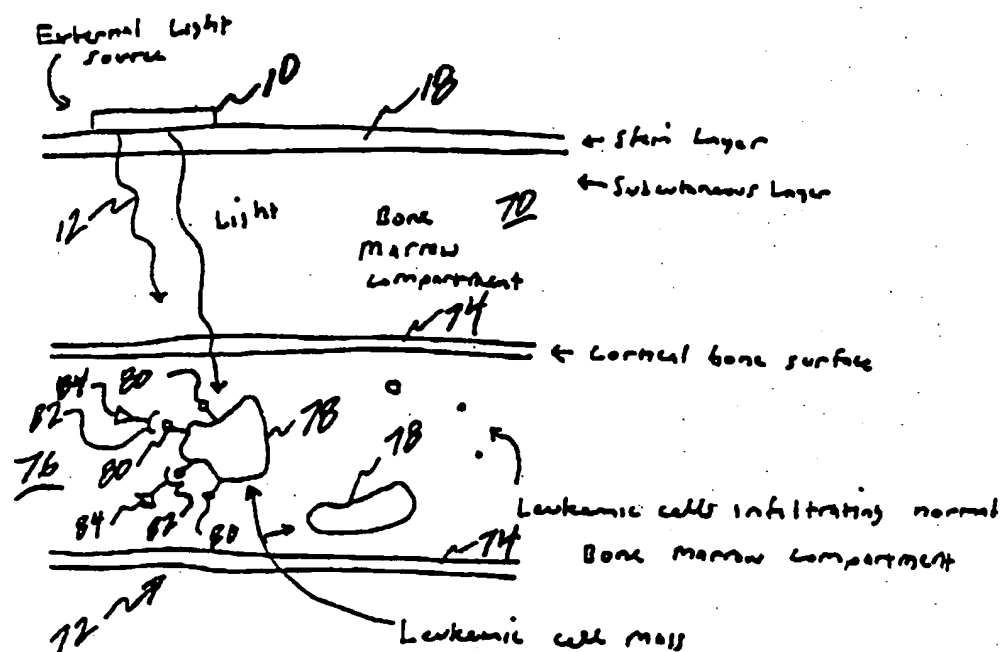 External Light
Source
10
18
Skin Layer
Subcutaneous Layer
12
Light
Bone
Marrow
compartment
70
74
Cortical bone surface
84
80
82
78
80
76
78
84
82
80
Leukemic cells infiltrating normal
Bone Marrow compartment
74
72
Leukemic cell Mass